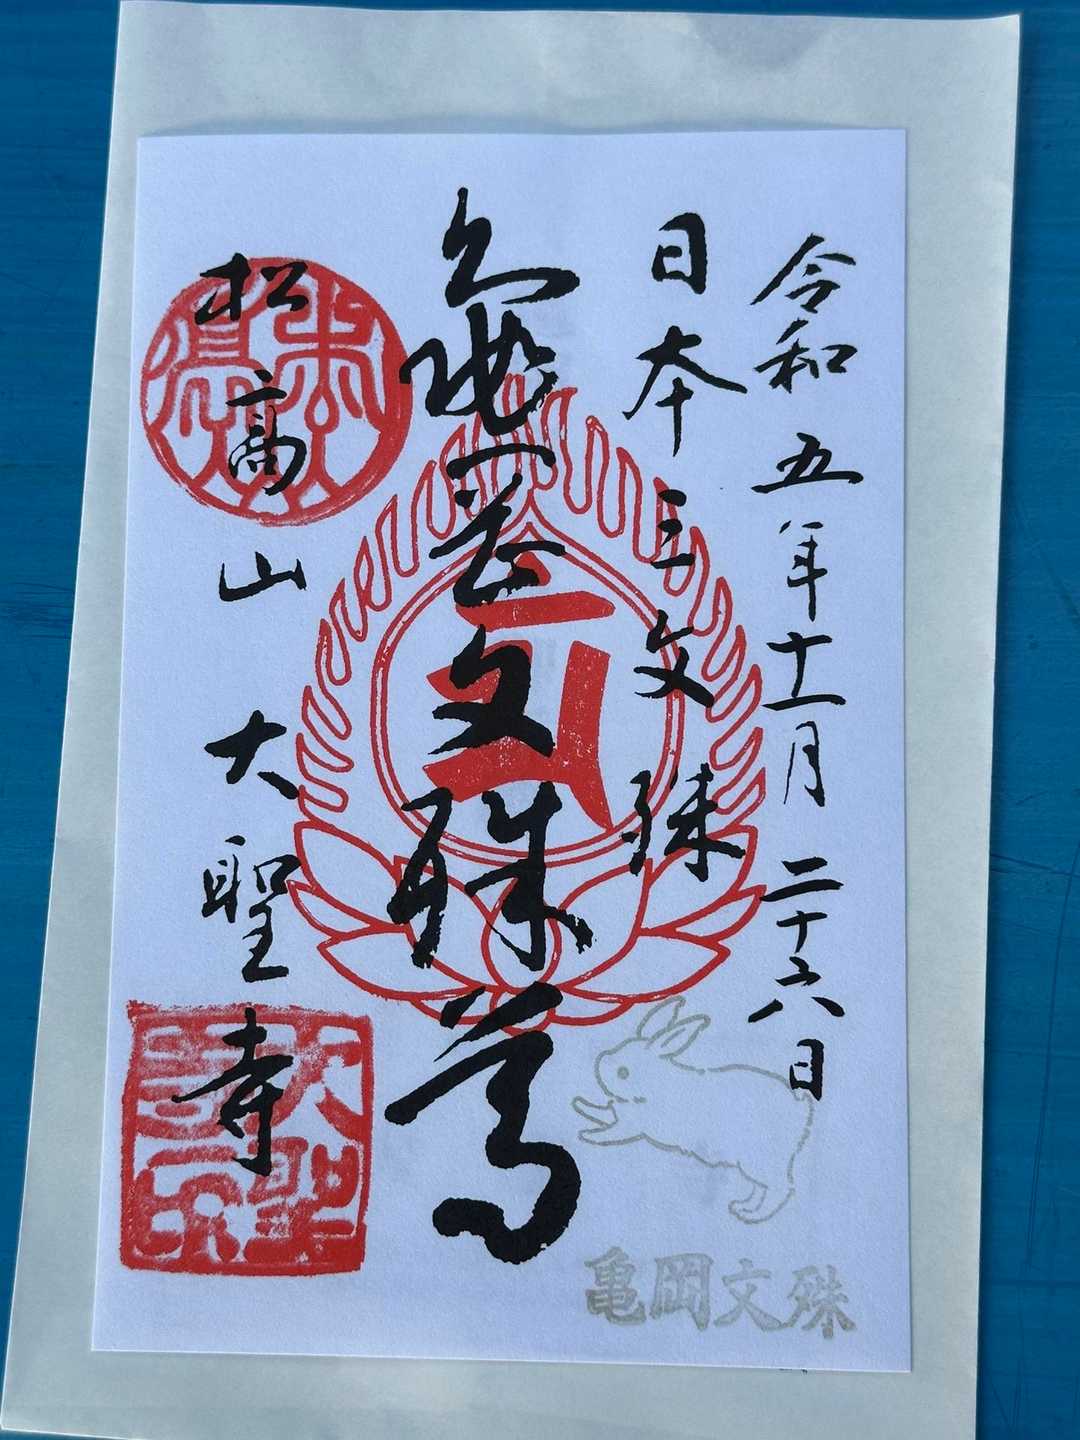 令和五年十一月二十六日
日本三文殊
亀岡文殊尊
松高山大聖寺
亀岡文殊